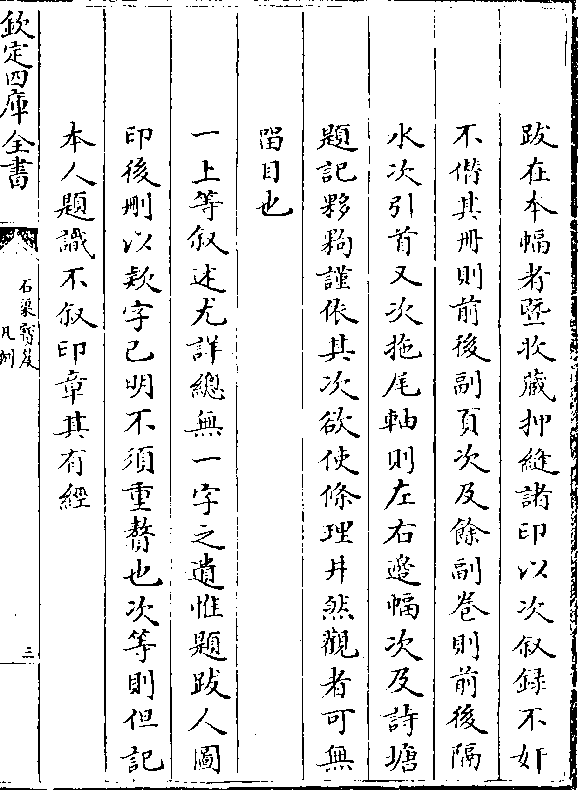 跋在本幅者暨收藏押縫諸印以次叙録不奸
不僭其册則前後副頁次及餘副卷則前後隔
水次引首又次拖尾軸則左右邊幅次及詩塘
題記夥夠謹依其次欲使條理井然觀者可無
瞀目也
一上等叙述尤詳總無一字之遺惟題跋人圖
印後刪以款字已明不須重贅也次等則但記
本人題識不叙印章其有經
欽定四庫全書
石渠寶笈
凡例
三